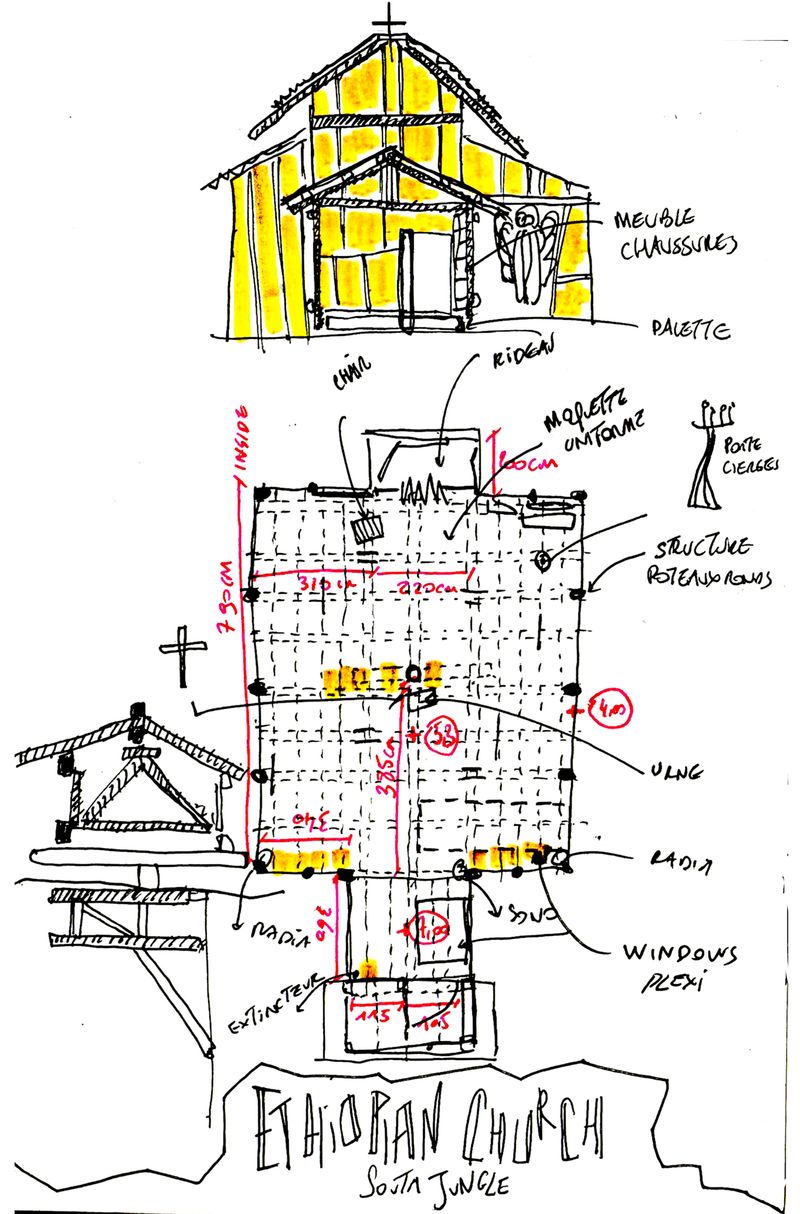 MEUBLE
CHAUSSURES
PALETTE
CHAIR
RIDEAU
MOQUETTE
UNIFORME
PORTE
CIERGES
INSIDE
200CM
STRUCTURE
POTEAUX RONDS
310 cm
220cm
790CM
375cm
URNE
340
RADIA
RADIA
SONO
360
WINDOWS
PLEXI
EXTINCTEUR
115
105
ETHIOPIAN CHURCH
SOUTH JUNGLE